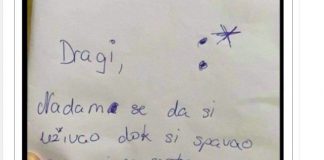 Dragi, :*
Nadam se da si
uživao dok si spavao